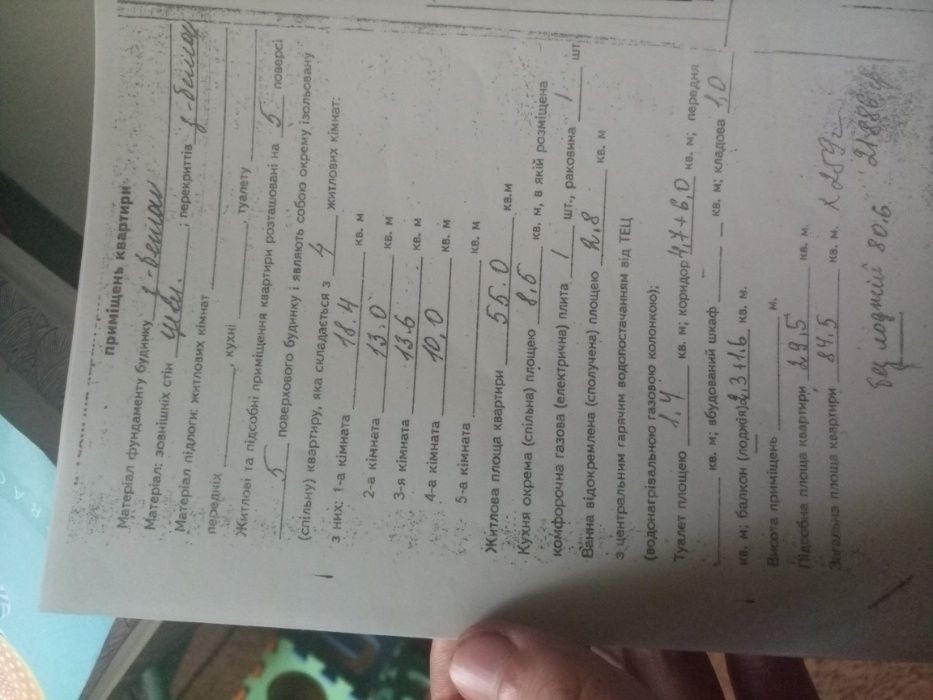 приміщень квартири
Матеріал фундаменту будинку з-бетон
Матеріал: зовнішніх стін цегл. ; перекриття з-бетон
Матеріал підлоги: житлових кімнат
передніх , кухні , туалету
Житлові та підсобні приміщення квартири розташовані на 5 поверсі
5 поверхового будинку і являють собою окрему ізольовану
(спільну) квартиру, яка складається з 4 житлових кімнат:
з них: 1-а кімната 18.4 кв. м
2-а кімната 13,0 кв. м
3-я кімната 13.6 кв. м
4-а кімната 10,0 кв. м
5-а кімната кв. м
Житлова площа квартири 55.0 кв.м
Кухня окрема (спільна) площею 8.5 кв. м, в якій розміщена
комфорочна газова (електрична) плита 1 шт., раковина 1 шт
Ванна відокремлена (сполучена) площею 2,8 кв. м
з центральним гарячим водопостачанням від ТЕЦ
(водонагрівальною газовою колонкою);
Туалет площею 1,4 кв. м; коридор 4,7+6,0 кв. м; передня
кв. м; вбудований шкаф кв. м; кладова 1,0
кв. м; балкон (лоджія) 2,3+1,6 кв. м.
Висота приміщень м.
Підсобна площа квартири 29,5 кв. м.
Загальна площа квартири 84,5 кв. м.
без лоджий 80.6